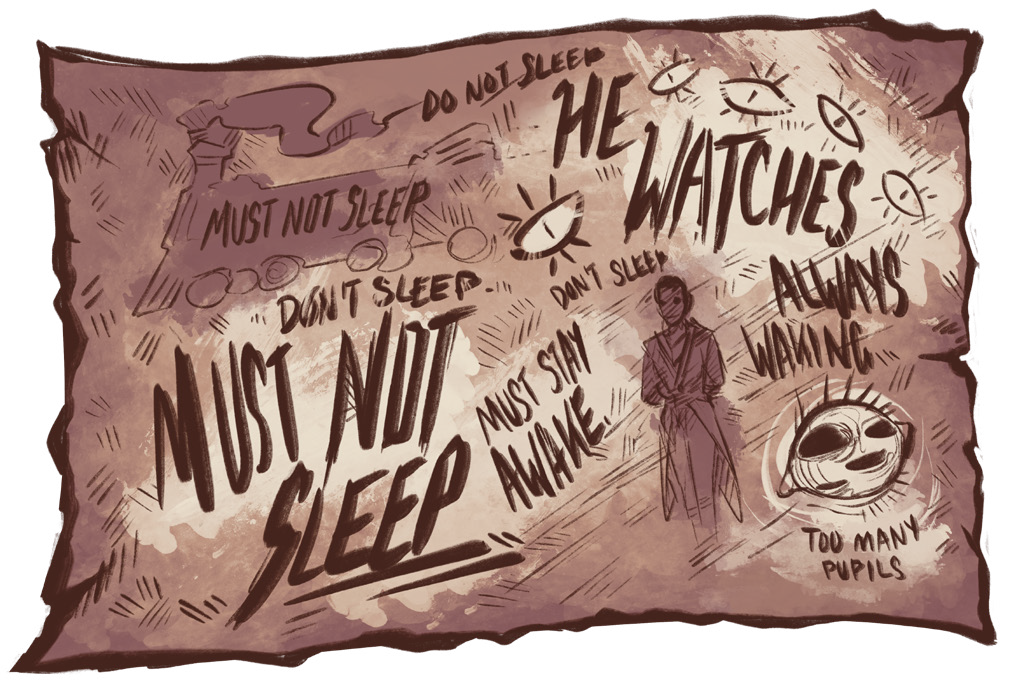 DO NOT SLEEP
HE
WATCHES
MUST NOT SLEEP
DON'T SLEEP.
DON'T SLEEP
ALWAYS
WAKING
MUST NOT
SLEEP
MUST STAY
AWAKE.
TOO MANY
PUPILS